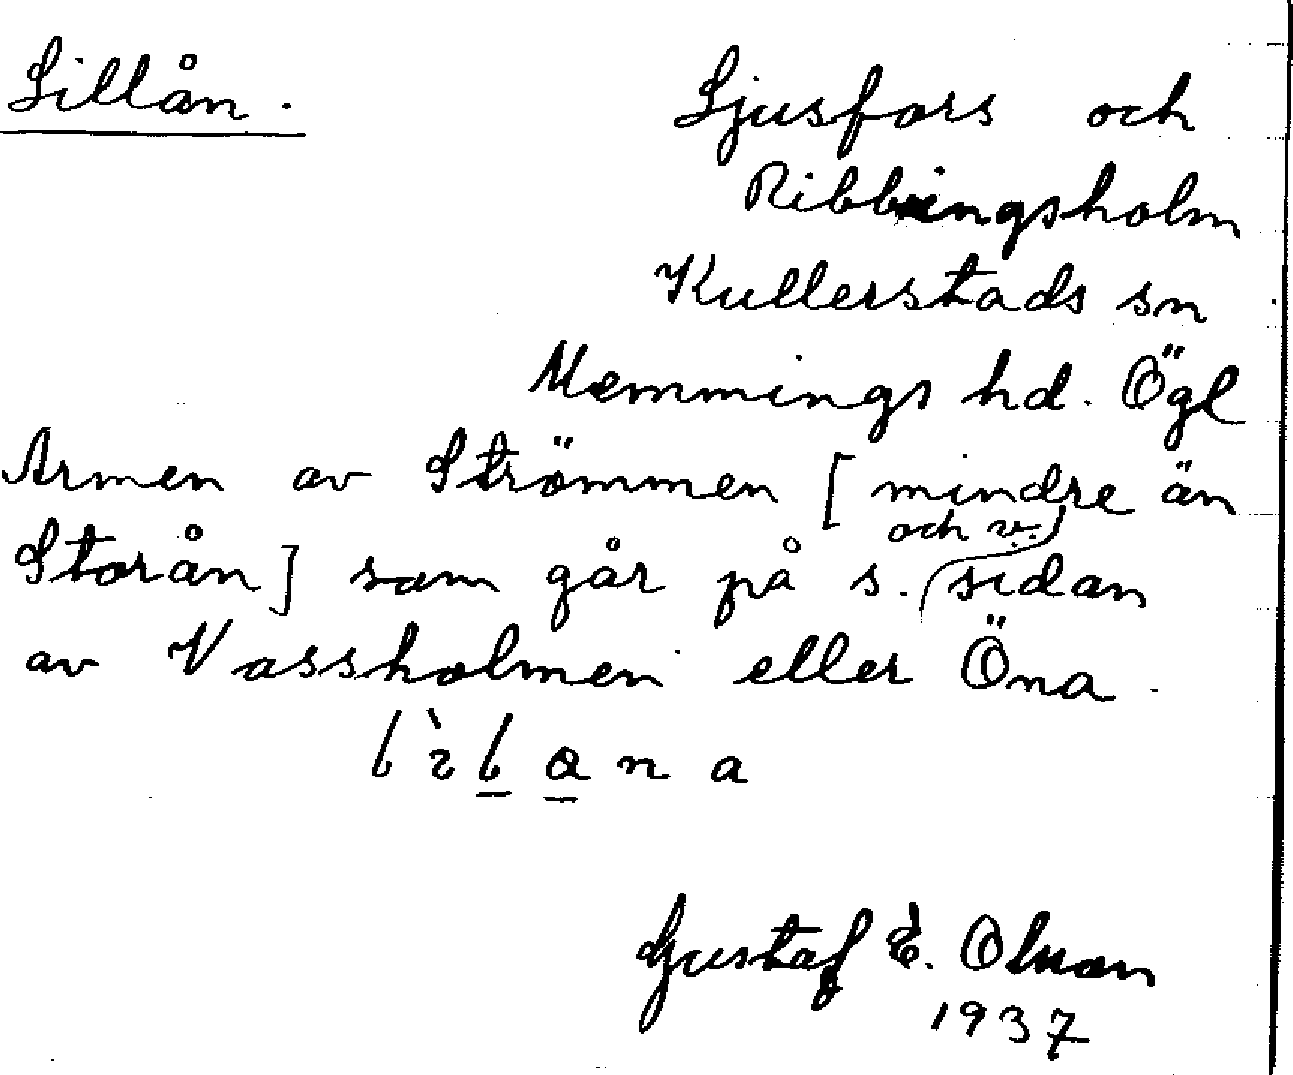 Lillån.
Ljusfors och
Ribbingsholm
Kullerstads sn
Memmings hd. Ögl
Armen av Strömmen [mindre än
Storån] som går på s. och v. sidan
av Vassholmen eller Öna.
Gustaf E. Olson
1937